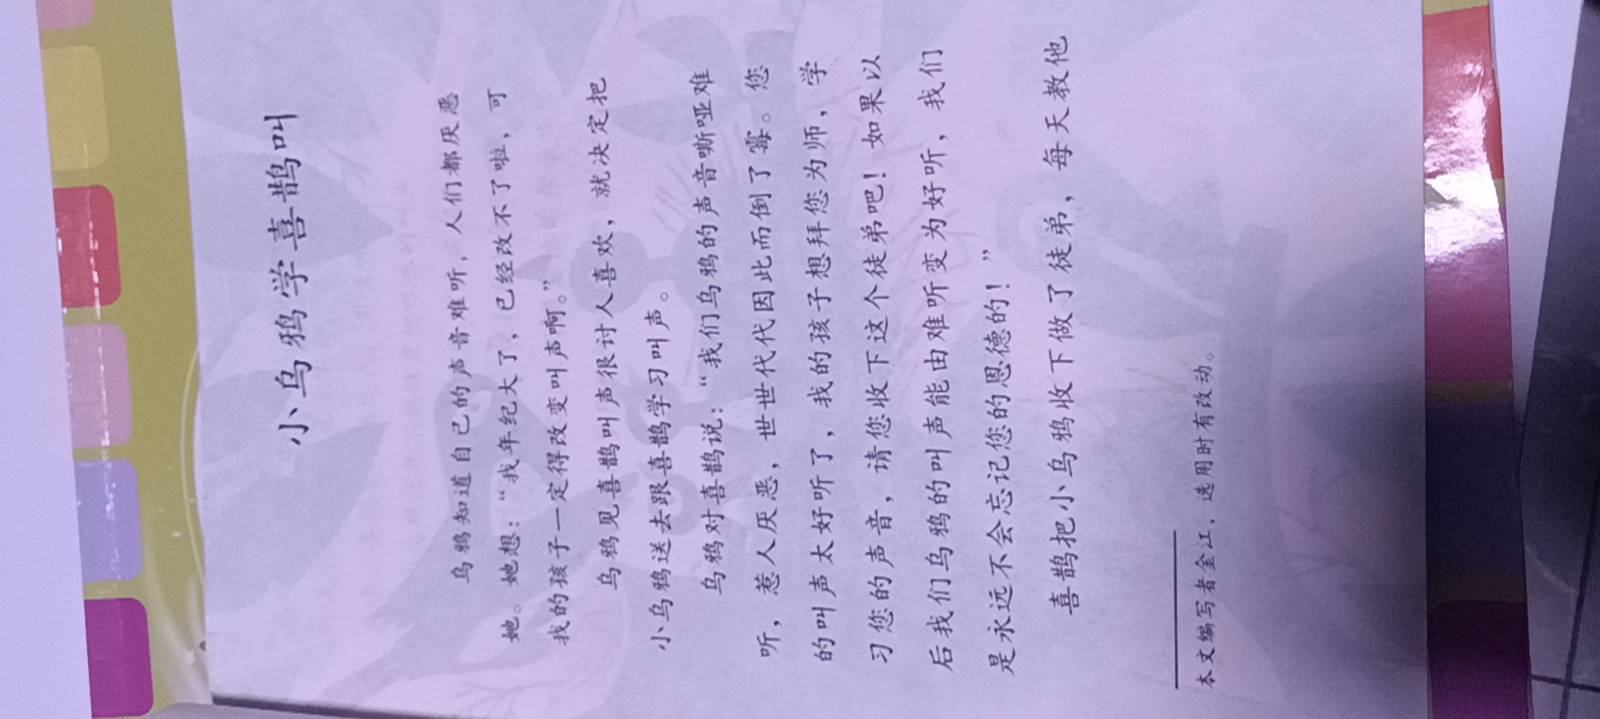 小乌鸦学喜鹊叫
乌鸦知道自己的声音难听，人们都厌恶
她。她想：“我年纪大了，已经改不了啦，可
我的孩子一定得改变叫声啊。”
乌鸦见喜鹊叫声很讨人喜欢，就决定把
小乌鸦送去跟喜鹊学习叫声。
乌鸦对喜鹊说：“我们乌鸦的声音嘶哑难
听，惹人厌恶，世世代代因此而倒了霉。您
的叫声太好听了，我的孩子想拜您为师，学
习您的声音，请您收下这个徒弟吧！如果以
后我们乌鸦的叫声能由难听变为好听，我们
是永远不会忘记您的恩德的！”
喜鹊把小乌鸦收下做了徒弟，每天教他
本文编写者金江，选用时有改动。